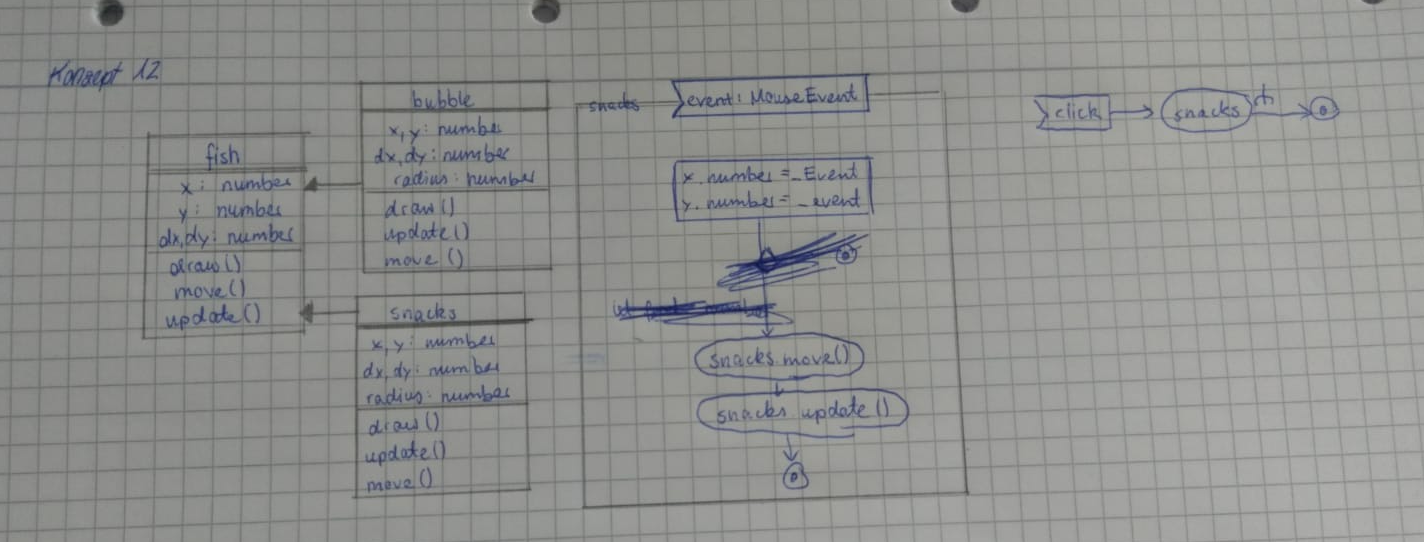 Konzept 12
fish
x: number
y: number
dx, dy: number
draw()
move()
update()
bubble
x, y: number
dx, dy: number
radius: number
draw()
update()
move()
snacks
x, y: number
dx, dy: number
radius: number
draw()
update()
move()
snacks
event: MouseEvent
x. number = _Event
y. number = _event
snacks.move()
snacks update()
click
snacks